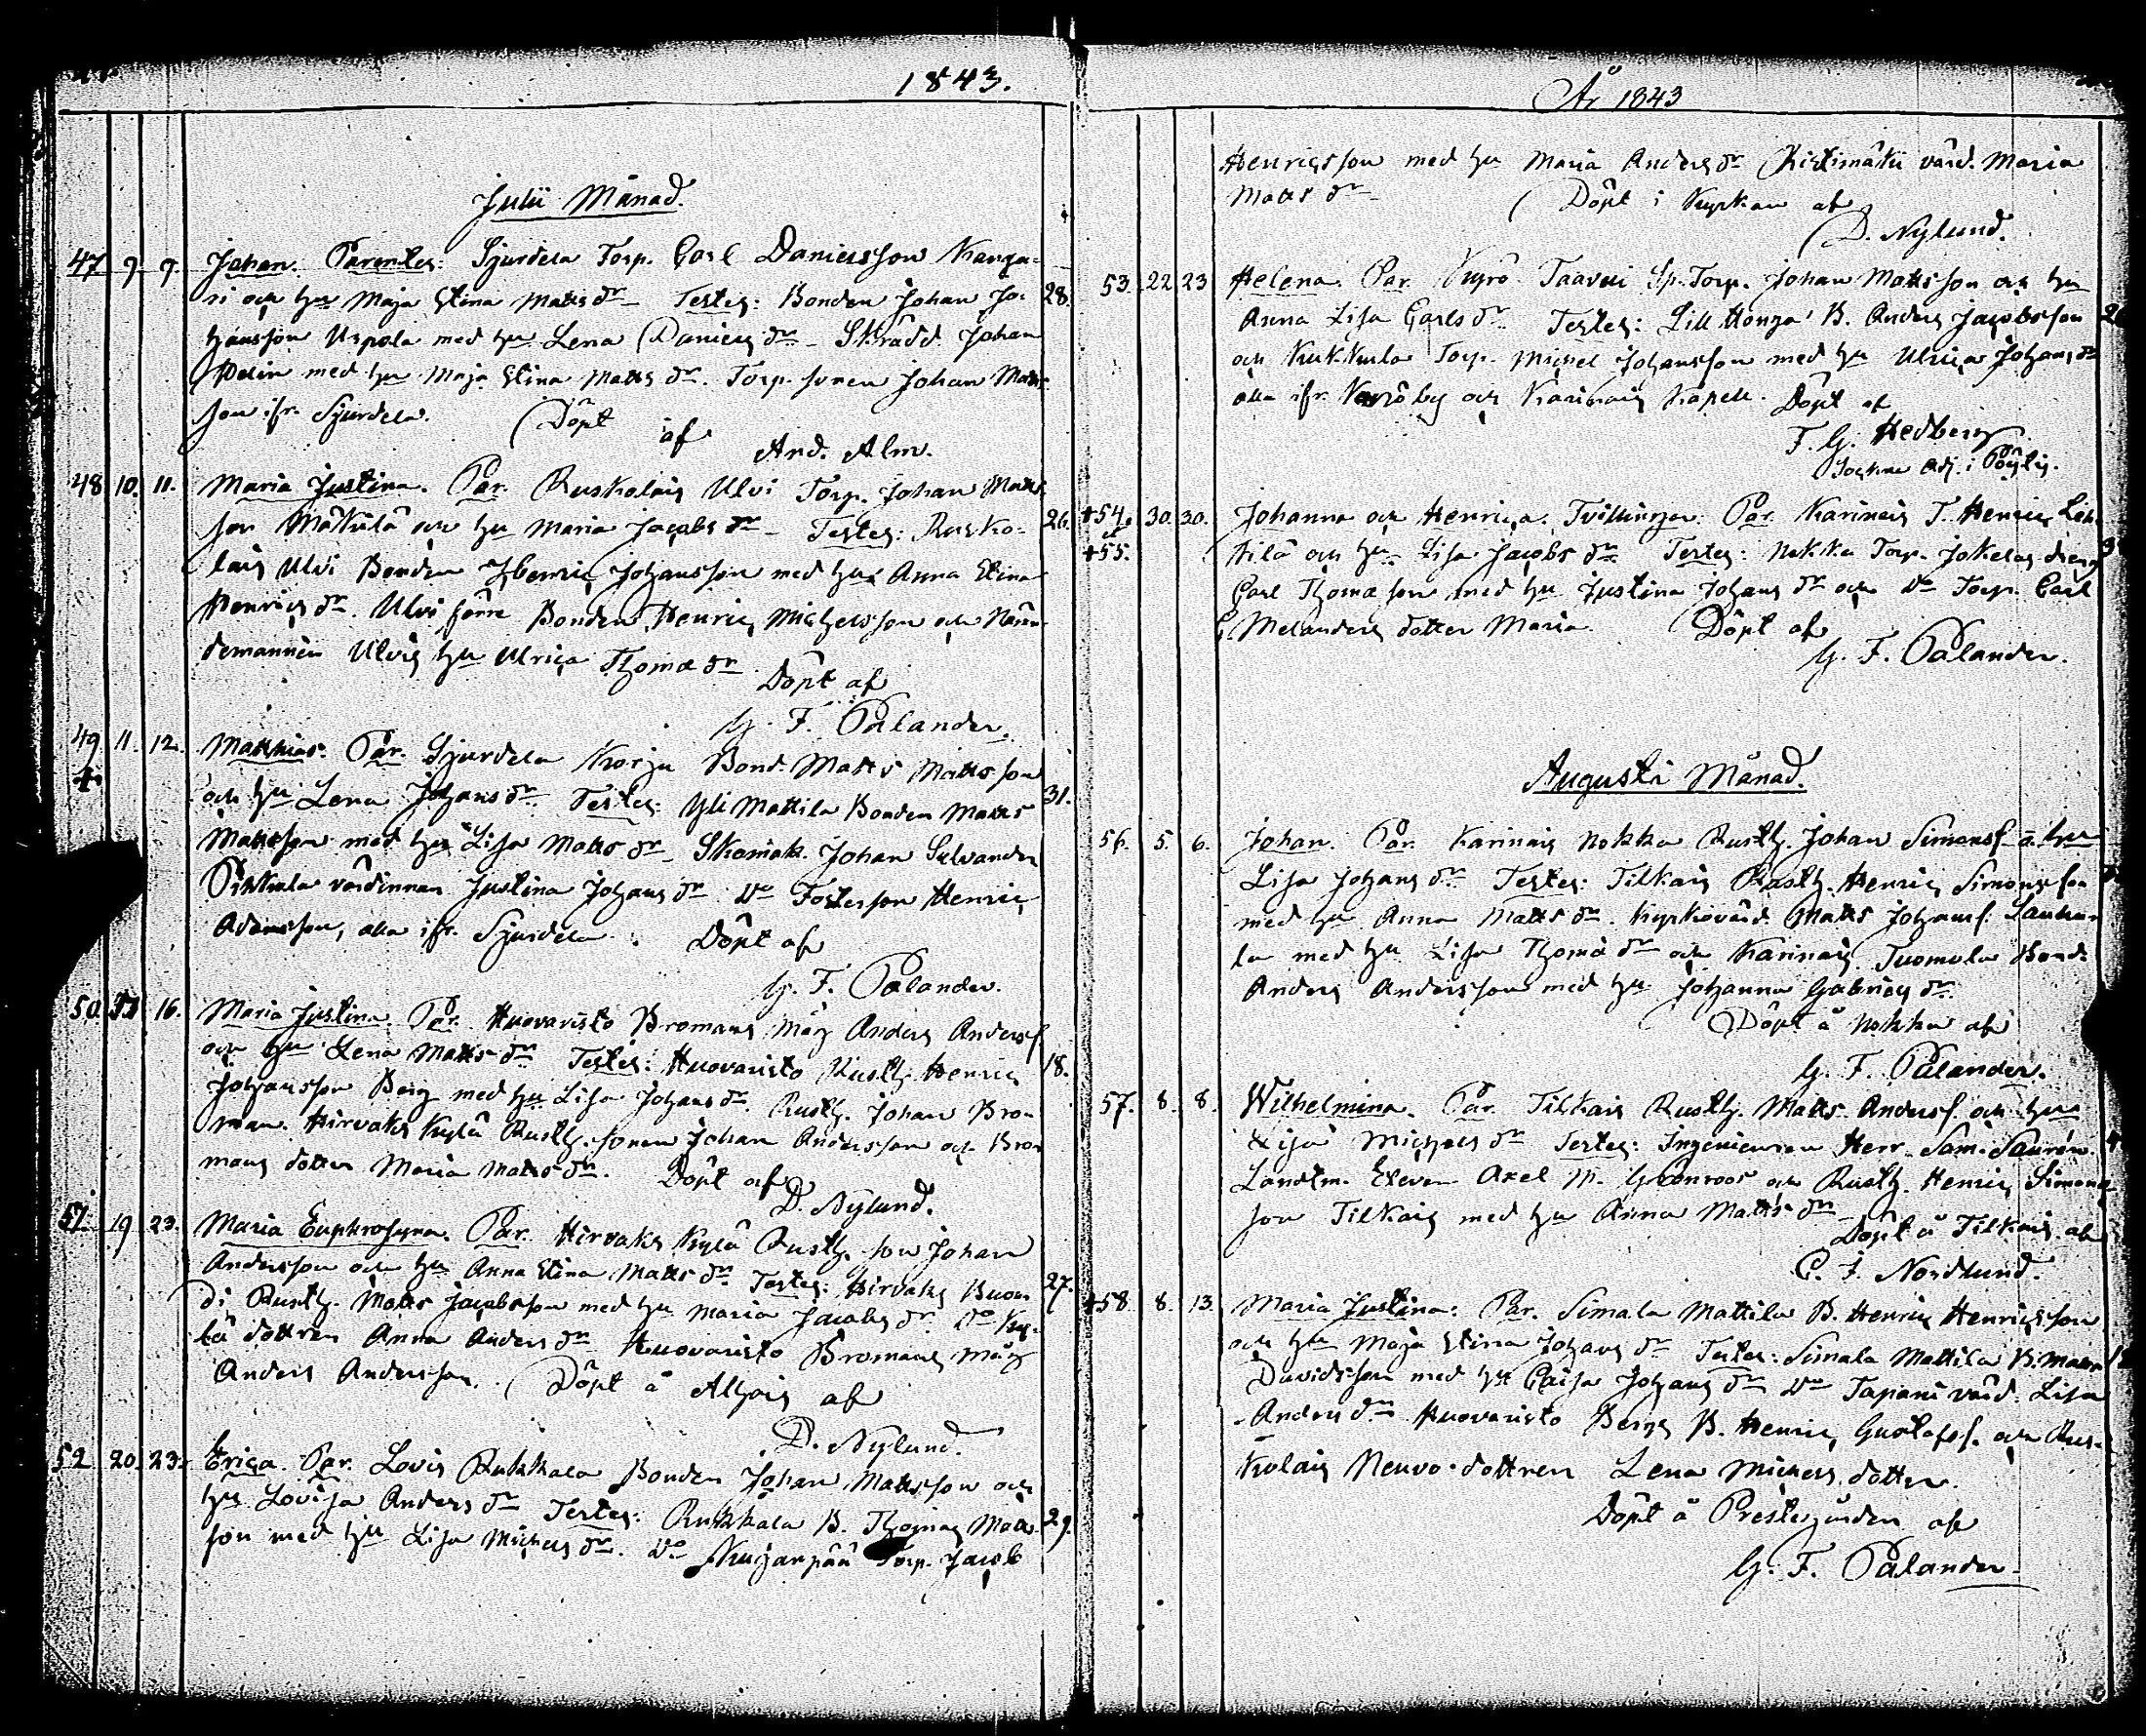 1843.
Julii Månad.
47 9 9. Johan. Parentes: Sjurdela Torp. Carl Danielsson Kanga-
ri och hu Maja Stina Matts dr Testes: Bonden Johan Jo- 28.
hansson Uspola med hu Lena Daniels dr Skrädd. Johan
Pelin med hu Maja Stina Matts dr. Torp. sonen Johan Matts-
son ifr. Sjurdela. Döpt af
And. Alm.
48 10. 11. Maria Justina. Par. Ruskolais Ulvi Torp. Johan Matts-
son Mäkilä och hu Maria Jacobs dr Testes: Rusko- 26.
lais Ulvi Bonden Henric Johansson med hu Anna Stina
Henrics dr. Ulvi förre Bonden Henric Michelsson och Näm-
demannen Ulvis hu Ulrica Thomæ dr
Döpt af
G. F. Palander.
49 11. 12. Matthias. Par. Sjurdela Korju Bond. Matts Mattsson
+ och hu Lena Johans dr. Testes: Yli Mattila Bonden Matts 31.
Mattsson med hu Lisa Matts dr Skomak. Johan Sulvander
Pihkala värdinnan Justina Johans dr. Do Fosterson Henric
Adamsson, alla ifr. Sjurdela. Döpt af
G. F. Palander.
50. 16. Maria Justina. Par. Huovaristo Bromans måg Anders Andersf.
och hu Lena Matts dr Testes: Huovaristo Rusth. Henric 18.
Johansson Berg med hu Lisa Johans dr. Rusth. Johan Bro-
man. Hirvaks Kylä Rusth. sonen Johan Andersson och Bro-
mans dotter Maria Matts dr. Döpt af
D. Nylund.
51. 19 23. Maria Euphrosyna. Par. Hirvaks Kylä Rusth. son Johan
Andersson och hu Anna Stina Matts dr. Testes: Hirvaks Buon- 27.
di Rusth. Matts Jacobsson med hu Maria Jacobs dr. Do Ky-
lä dottren Anna Anders dr Huovaristo Bromans måg
Anders Andersson. Döpt å Alhais af
D. Nylund.
52 20. 23. Erica. Par. Lovis Rukkala Bonden Johan Mattsson och
hu Lovisa Anders dr Testes: Rukkala B. Thomas Matts- 29.
son med hu Lisa Michels dr. Do Kujanpää Torp. Jacob
År 1843
Henricsson med hu Maria Anders dr Ristimäki värd. Maria
Matts dr (Döpt i Kyrkan af
D. Nylund.
53. 22 23 Helena. Par. Kyrö Taavui Sp. Torp. Johan Mattsson och hu
Anna Lisa Carls dr Testes: Lill Honga B. Anders Jacobsson
och Kukkula Torp. Michel Johansson med hu Ulrica Johans dr
alla ifr. Kyrö by och Karinais Kapell. Döpt af
F. G. Hedberg
Sockne Adj. i Pöytis.
+54. 30. 30. Johanna och Henrica. Tvillingar. Par. Karinais T. Henric Leh-
+55. tilä och hu Lisa Jacobs dr. Testes: Nokka Torp. Jokelas dreng
Carl Thomæson med hu Justina Johans dr och Do Torp. Carl
Melanders dotter Maria. Döpt af
G. F. Palander.
Augusti Månad.
56. 5. 6. Johan. Par. Karinais Nokka Rusth. Johan Simonsf. o. hu
Lisa Johans dr Testes: Tilkais Rusth. Henric Simonsson
med hu Anna Matts dr. Kyrkovärd. Matts Johansf. Lauku-
la med hu Lisa Thomæ dr och Karinais Tuomola Bond.
Anders Andersson med hu Johanna Gabriels dr.
Döpt å Nokka af
G. F. Palander.
57. 8. 8. Wilhelmina. Par. Tilkais Rusth. Matts Andersf. och hu
Lisa Michels dr Testes: Ingenieuren Herr Sam. Saurén.
Landtm. Eleven Axel M. Grönroos och Rusth. Henric Simons-
son Tilkais med hu Anna Matts dr
Döpt å Tilkais af
C. J. Nordlund.
+58. 8. 13. Maria Justina. Par. Simala Mattila B. Henric Henricsson
och hu Maja Stina Johans dr Testes: Simala Mattila B. Matts
Davidsson med hu Caisa Johans dr Do Tapani värd. Lisa
Anders dr Huovaristo Bergs B. Henric Gustafsf. och Rus-
kolais Neuvo-dottren Lena Michels dotter.
Döpt å Prestegården af
G. F. Palander.